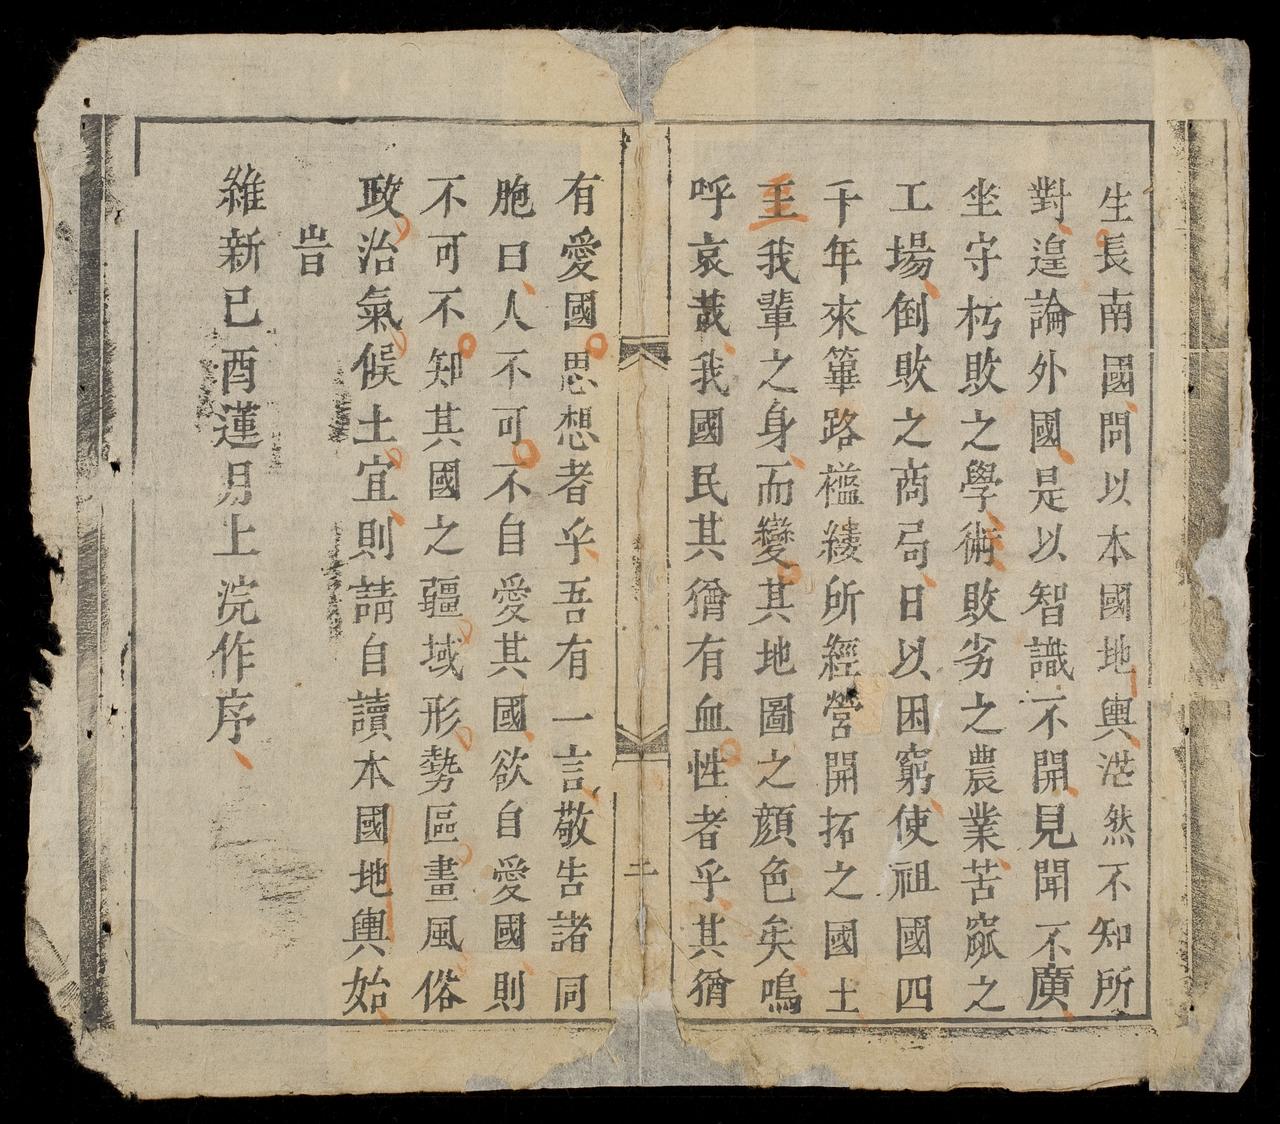 生長南國問以本國地輿茫然不知所
對遑論外國是以智識不開見聞不廣
坐守朽敗之學術敗劣之農業苦窳之
工場倒敗之商局日以困窮使祖國四
千年來篳路襤縷所經營開拓之國土
至我輩之身而變其地圖之顔色矣嗚
呼哀哉我國民其猶有血性者乎其猶
二
有愛國思想者乎吾有一言敬告諸同
胞曰人不可不自愛其國欲自愛國則
不可不知其國之疆域形勢區畫風俗
政治氣候土宜則請自讀本國地輿始
旹
維新己酉蓮月上浣作序